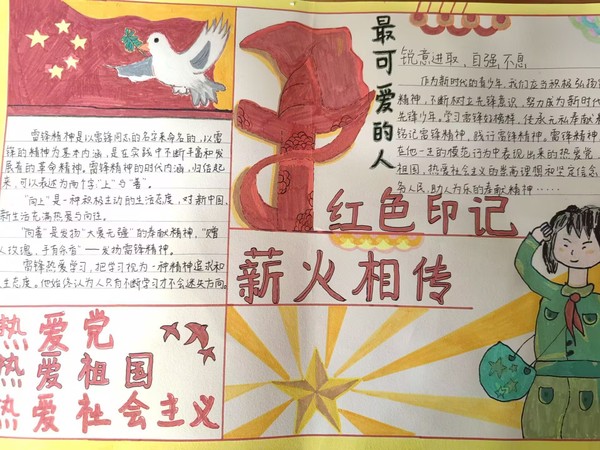 雷锋精神是以雷锋同志的名字来命名的，以雷
锋的精神为基本内涵，是在实践中不断丰富和发
展着的革命精神。雷锋精神的时代内涵，归结起
来，可以表述为两个字："上"与"善"。
"向上"是一种积极主动的生活态度，对新中国、
新生活充满热爱与向往。
"向善"是发扬"大爱无疆"的奉献精神，"赠
人玫瑰，手有余香"——发扬雷锋精神。
雷锋热爱学习，把学习视为一种精神追求和
生态度。他始终认为人只有不断学习才不会迷失方向。
热爱党
热爱祖国
热爱社会主义
最可爱的人
锐意进取，自强不息
作为新时代的青少年，我们应当积极弘扬
精神，不断树立先锋意识，努力成为新时代
先锋少年，学习雷锋好榜样，任永元私奉献
铭记雷锋精神，践行雷锋精神。雷锋精神，
在他一生的模范行为中表现出来的热爱党、
祖国、热爱社会主义的崇高理想和坚定信念
务人民、助人为乐的奉献精神……
红色印记
薪火相传